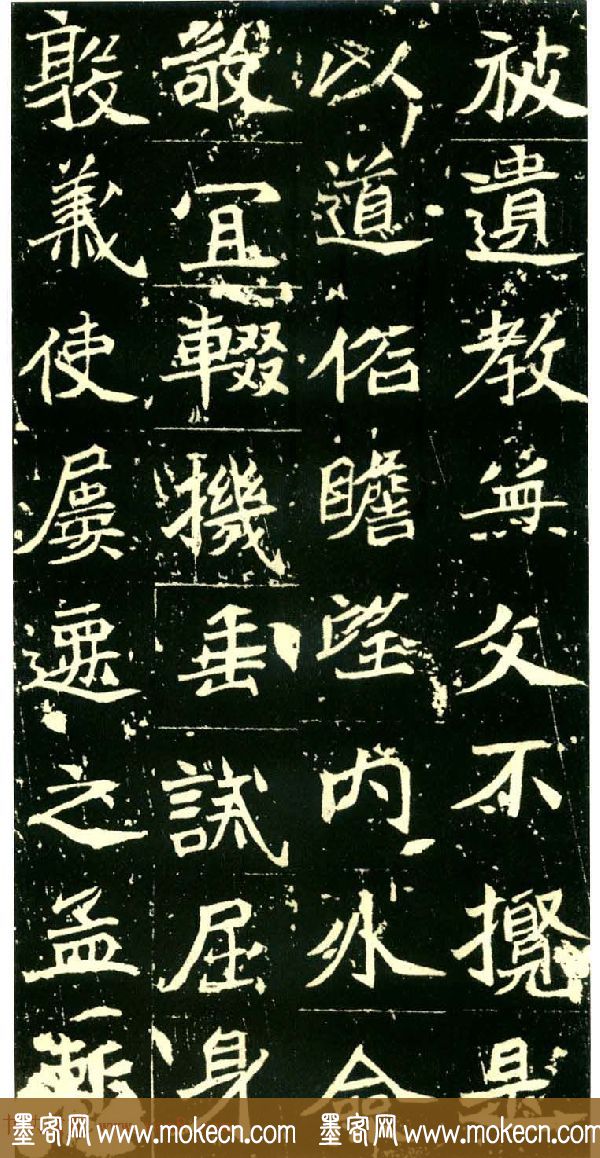 被遺教無文不攬是
以道俗瞻望内外
敬冝輟機垂試屈身
敦義使屢之孟
墨客网 www.mokecn.com 墨客网 www.mokecn.com